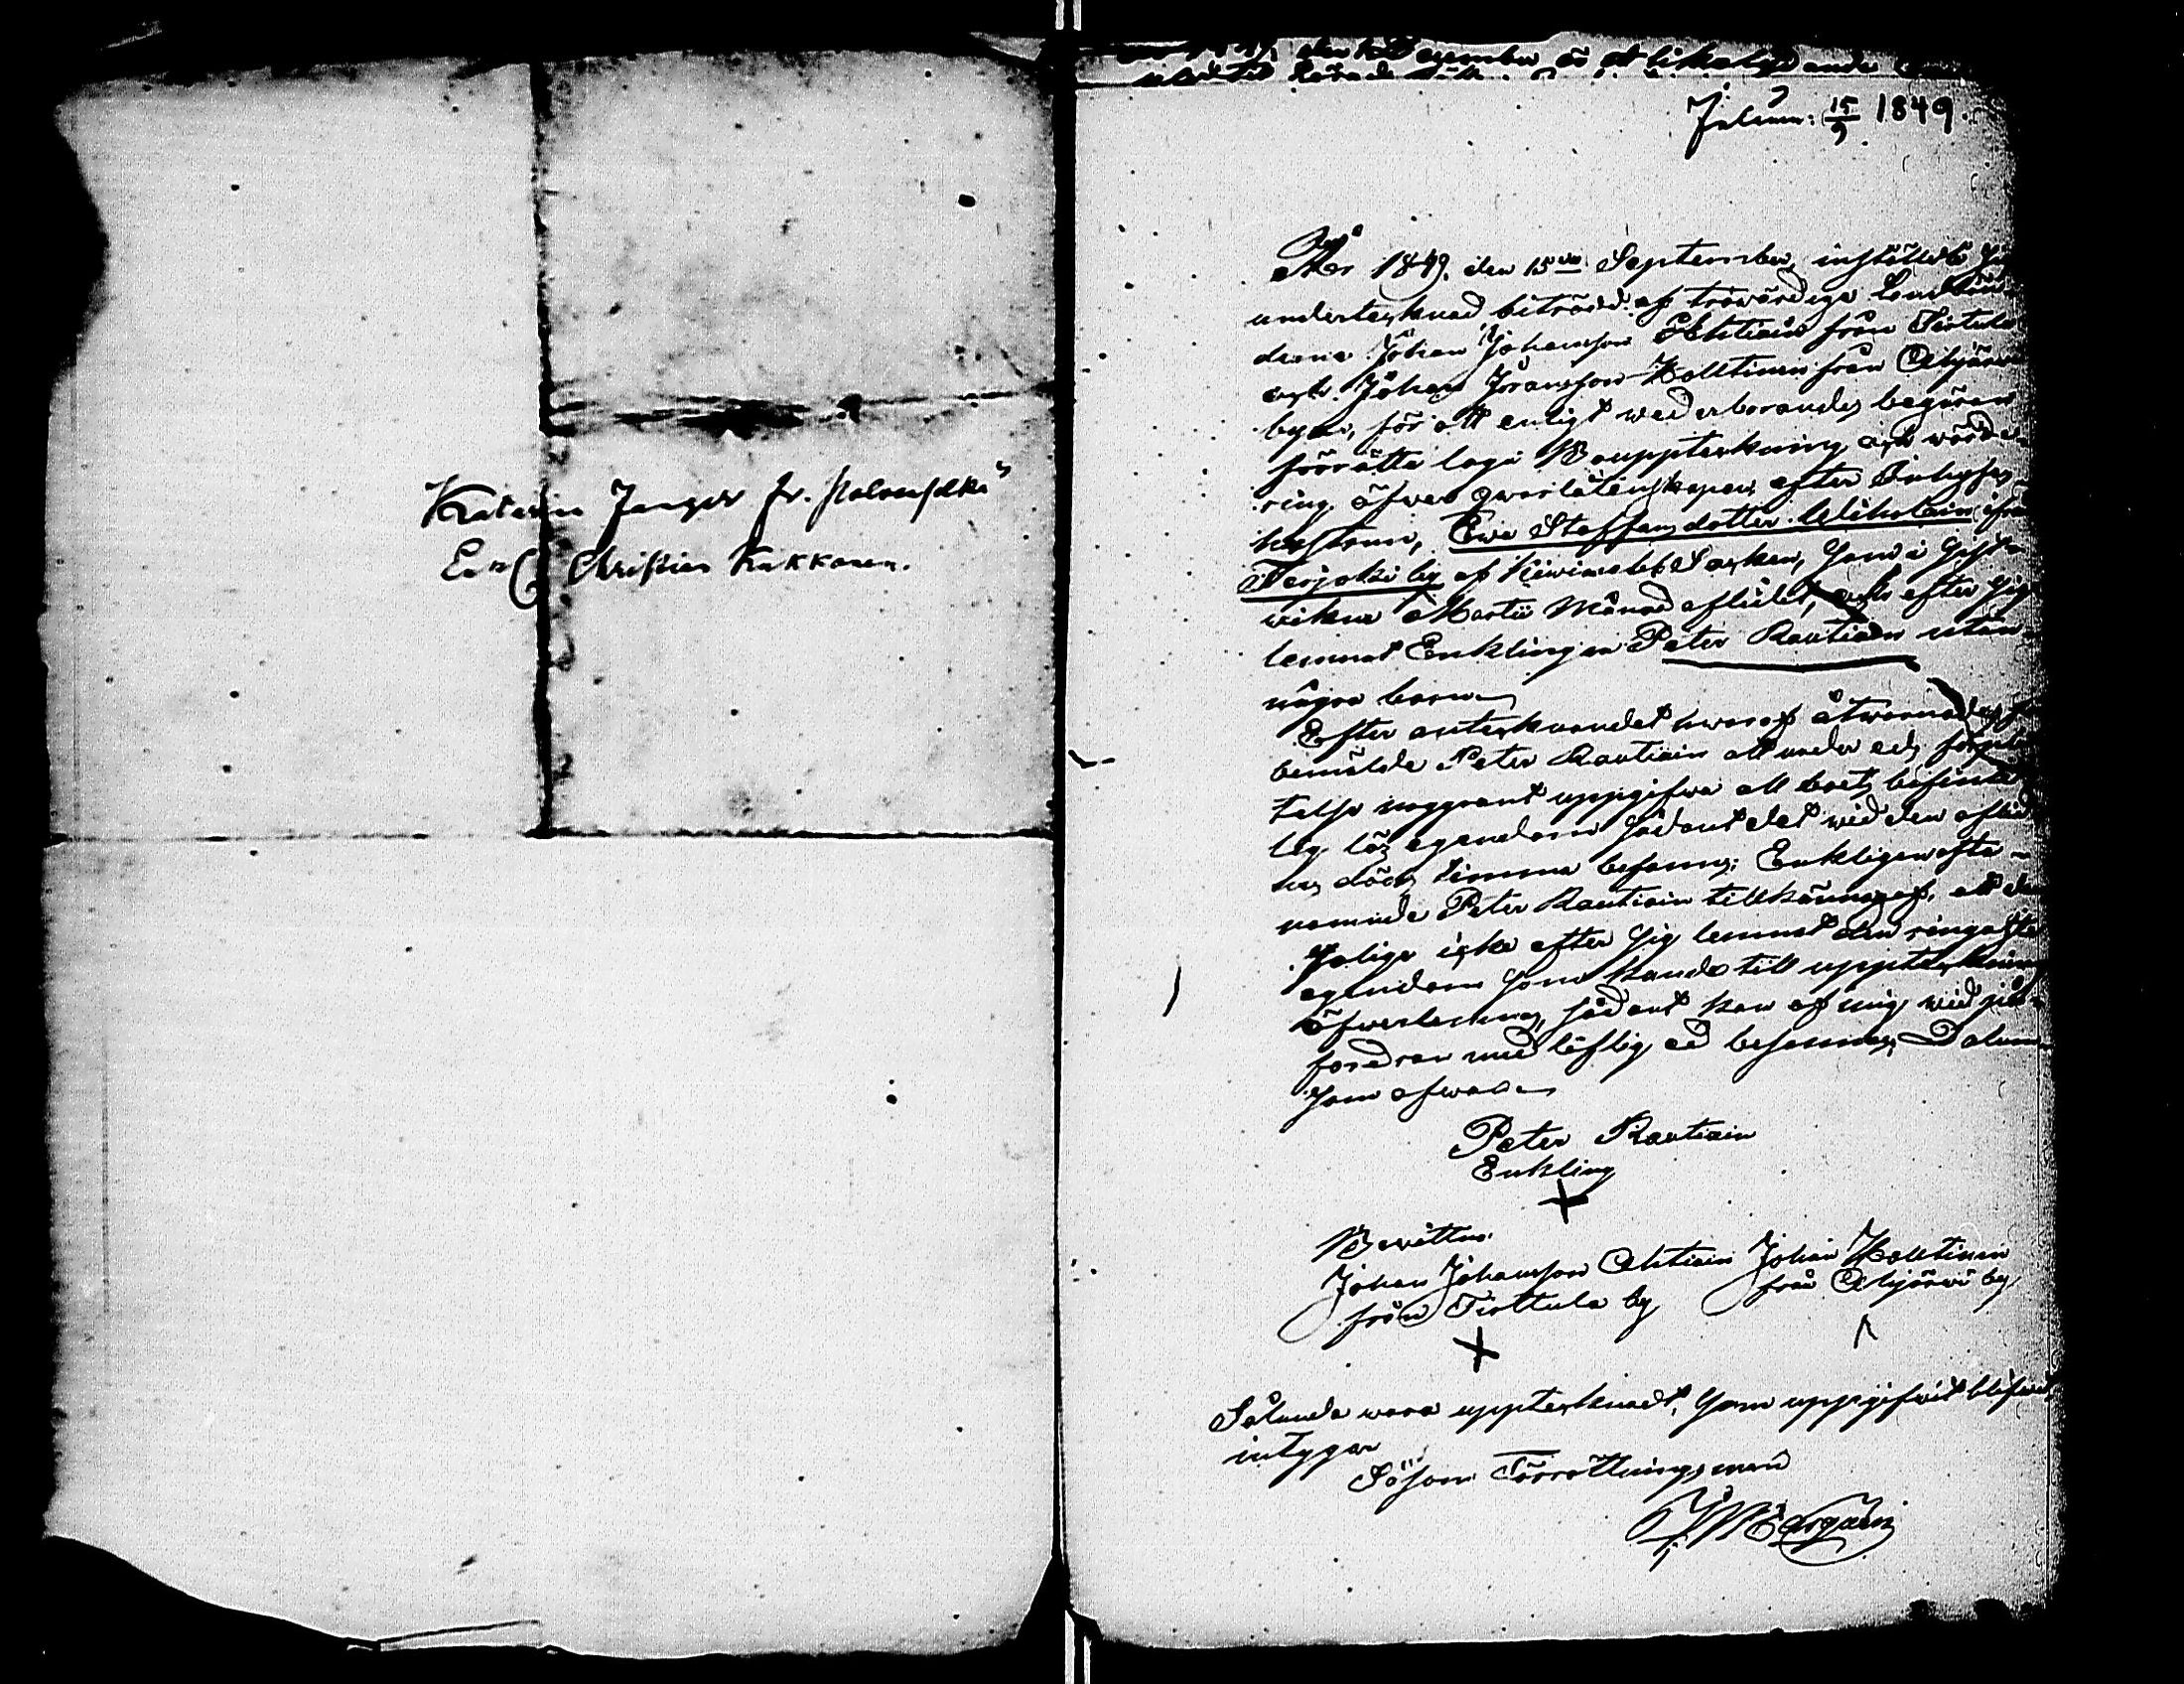 Katarin Janger fr.
Enc Christian Kukkonen.
den December är et lika lydande
15/9 1849.
År 1849. den 15de September, instälde sig
undertecknad biträdd af trovärdige Landbön-
derne Johan Johansson Ahtiain från Tirttula
och Johan Jöransson Holttinen från Ahjärvi
byar, för att enligt wederborandes begäran
förrätta laga Bouppteckning och wärde-
ring öfwer qwarlåtenskapen efter Inhyses
hustrun, Ewa Staffansdotter från
Terjoki by af Kiwinebb Socken, som i sist-
wikne Martii Månad aflidet, och efter sig
lemnat Enklingen Peter Rautiain utan
några barn
Efter antecknandet hwaraf åtwarnades
bemälde Peter Rautiain att under eds förplik-
telse noggrant uppgifwa all boets befinte-
lig lös egendom sådant det wid den aflid-
nes döds timma befans; Enklingen ofta-
nemnde Peter Rautiain tillkännagaf, att den
Salige icke efter sig lemnat den ringaste
egendom som kunde till uppteckning
öfwerlemnas, sådant kan af mig wid på-
fordran med liflig ed besannas, Datum
som ofwan
Peter Rautiain
Enkling
X
Bewittna
Johan Johansson Ahtiain Johan Holttinen
från Tirttula by från Ahjärwi by
X
Sålunda wara upptecknadt, som uppgifwit blifwit
intygar
Såsom Förrättningsman